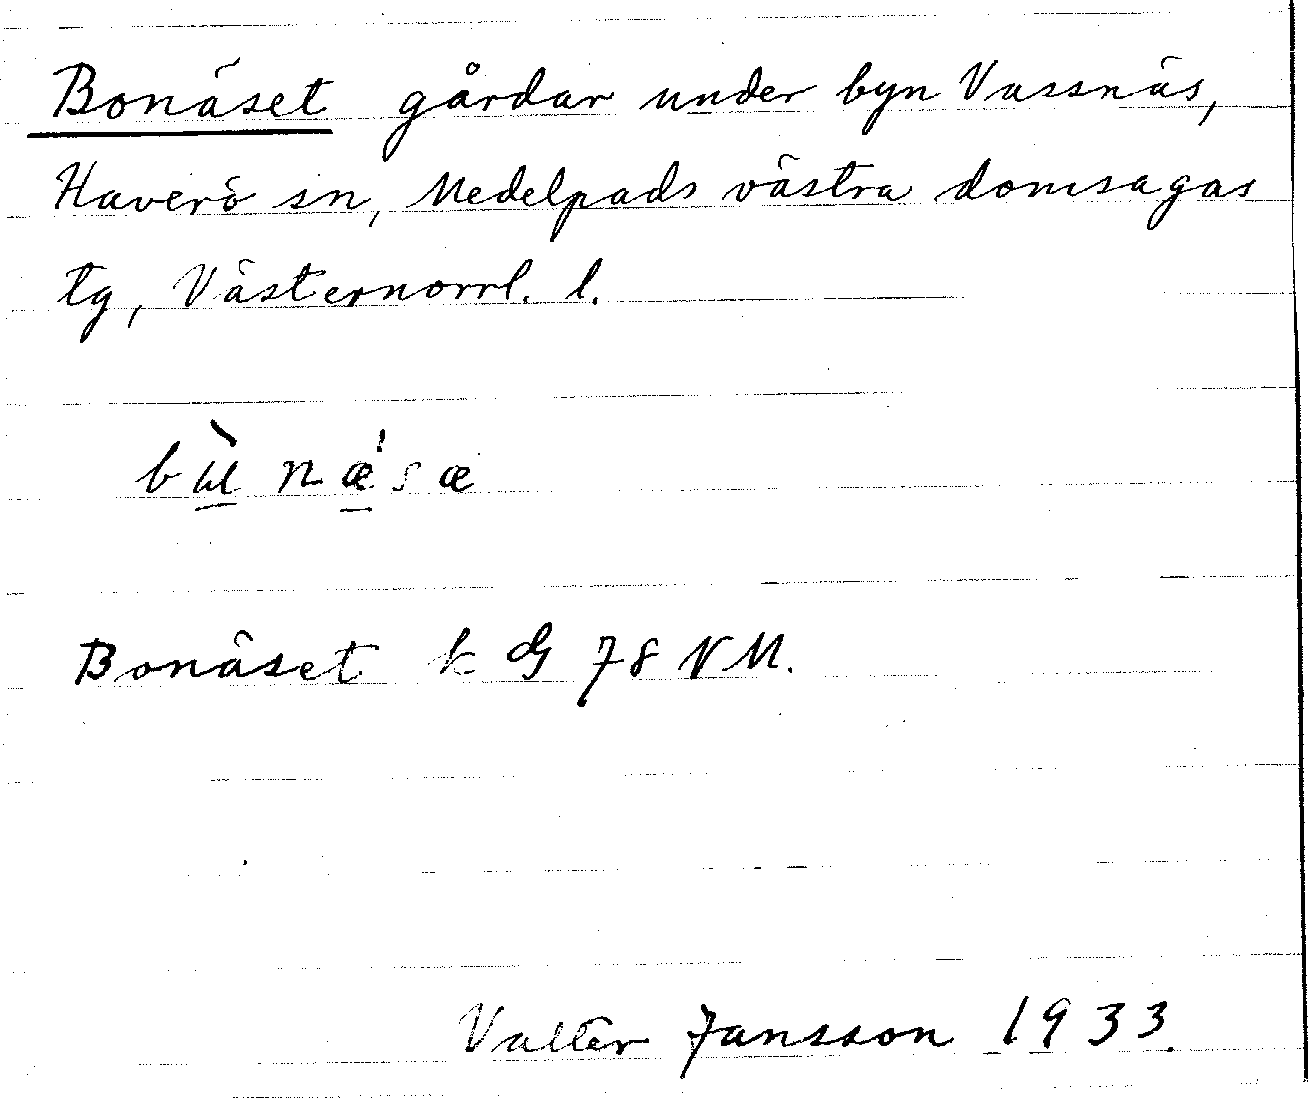 Bonäset gårdar under byn Vassnäs,
Haverö sn, Medelpads västra domsagas
tg, Västernorrl. l.
Bonäset k G 78 NM.
Valter Jansson 1933.